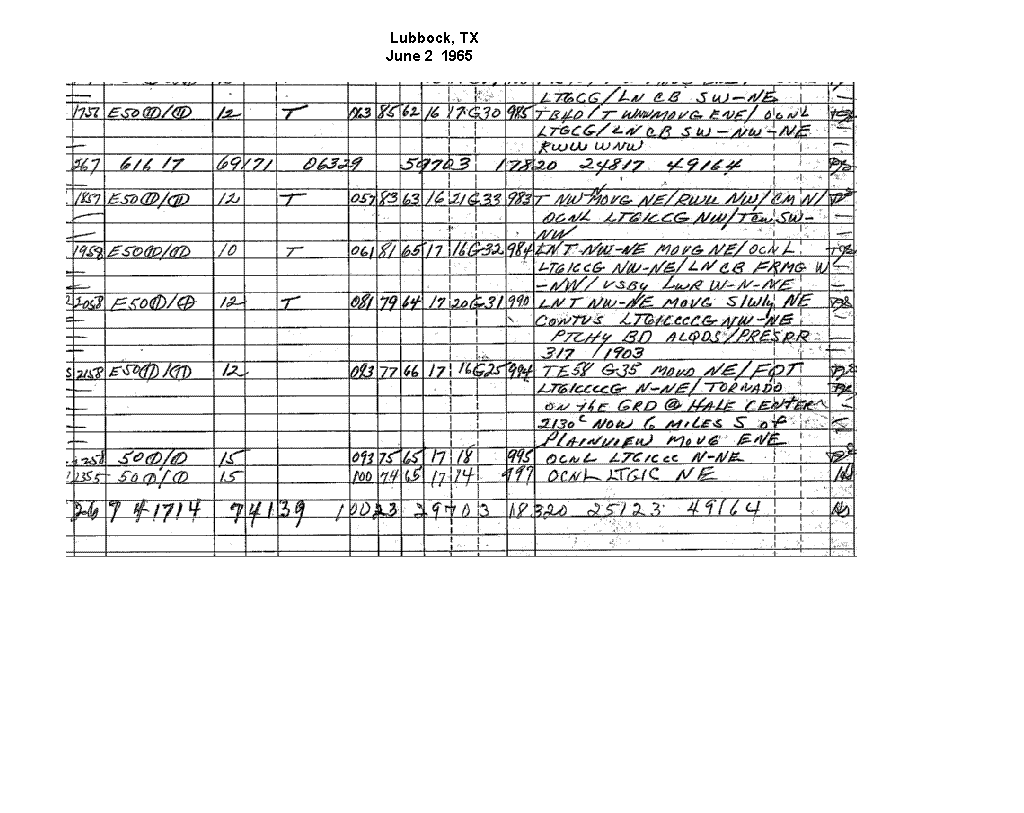 Lubbock, TX
June 2 1965
LTGCG/LN CB SW-NE
1757 E50⦶/⦶ 12 T 063 85 62 16 17G30 985 TB40/T WNW MOVG ENE/OCNL
LTGCG/LN CB SW-NW-NE
RWU WNW
267 61617 69171 06329 59703 17820 24817 49164
1857 E50⦶/⦶ 12 T 057 83 63 16 21G33 983 T NW MOVG NE/RWU NW/CM N/
OCNL LTGICCG NW/TCU SW-
NW
1958 E50⦶/⦶ 10 T 061 81 65 17 16G32 984 LNT NW-NE MOVG NE/OCNL
LTGICCG NW-NE/LN CB FRMG W
-NW/VSBY LWR W-N-NE
2058 E50⦶/⦶ 12 T 081 79 64 17 20G31 990 LNT NW-NE MOVG Slwly NE
CONTUS LTGICCCCG NW-NE
PTCHY BD ALQDS/PRESRR
317 /1903
S 2158 E50⦶/⦶ 12 093 77 66 17 16G25 994 TE58 G35 MOVD NE/FQT
LTGICCCCG N-NE/TORNADO
ON the GRD @ HALE CENTER
2130C NOW 6 MILES S of
PLAINVIEW MOVG ENE
2258 50⦶/⦶ 15 093 75 65 17 18 995 OCNL LTGICCC N-NE
2355 50⦶/⦶ 15 100 74 65 17 14 997 OCNL LTGIC NE
267 41714 74139 10023 29703 18320 25123 49164